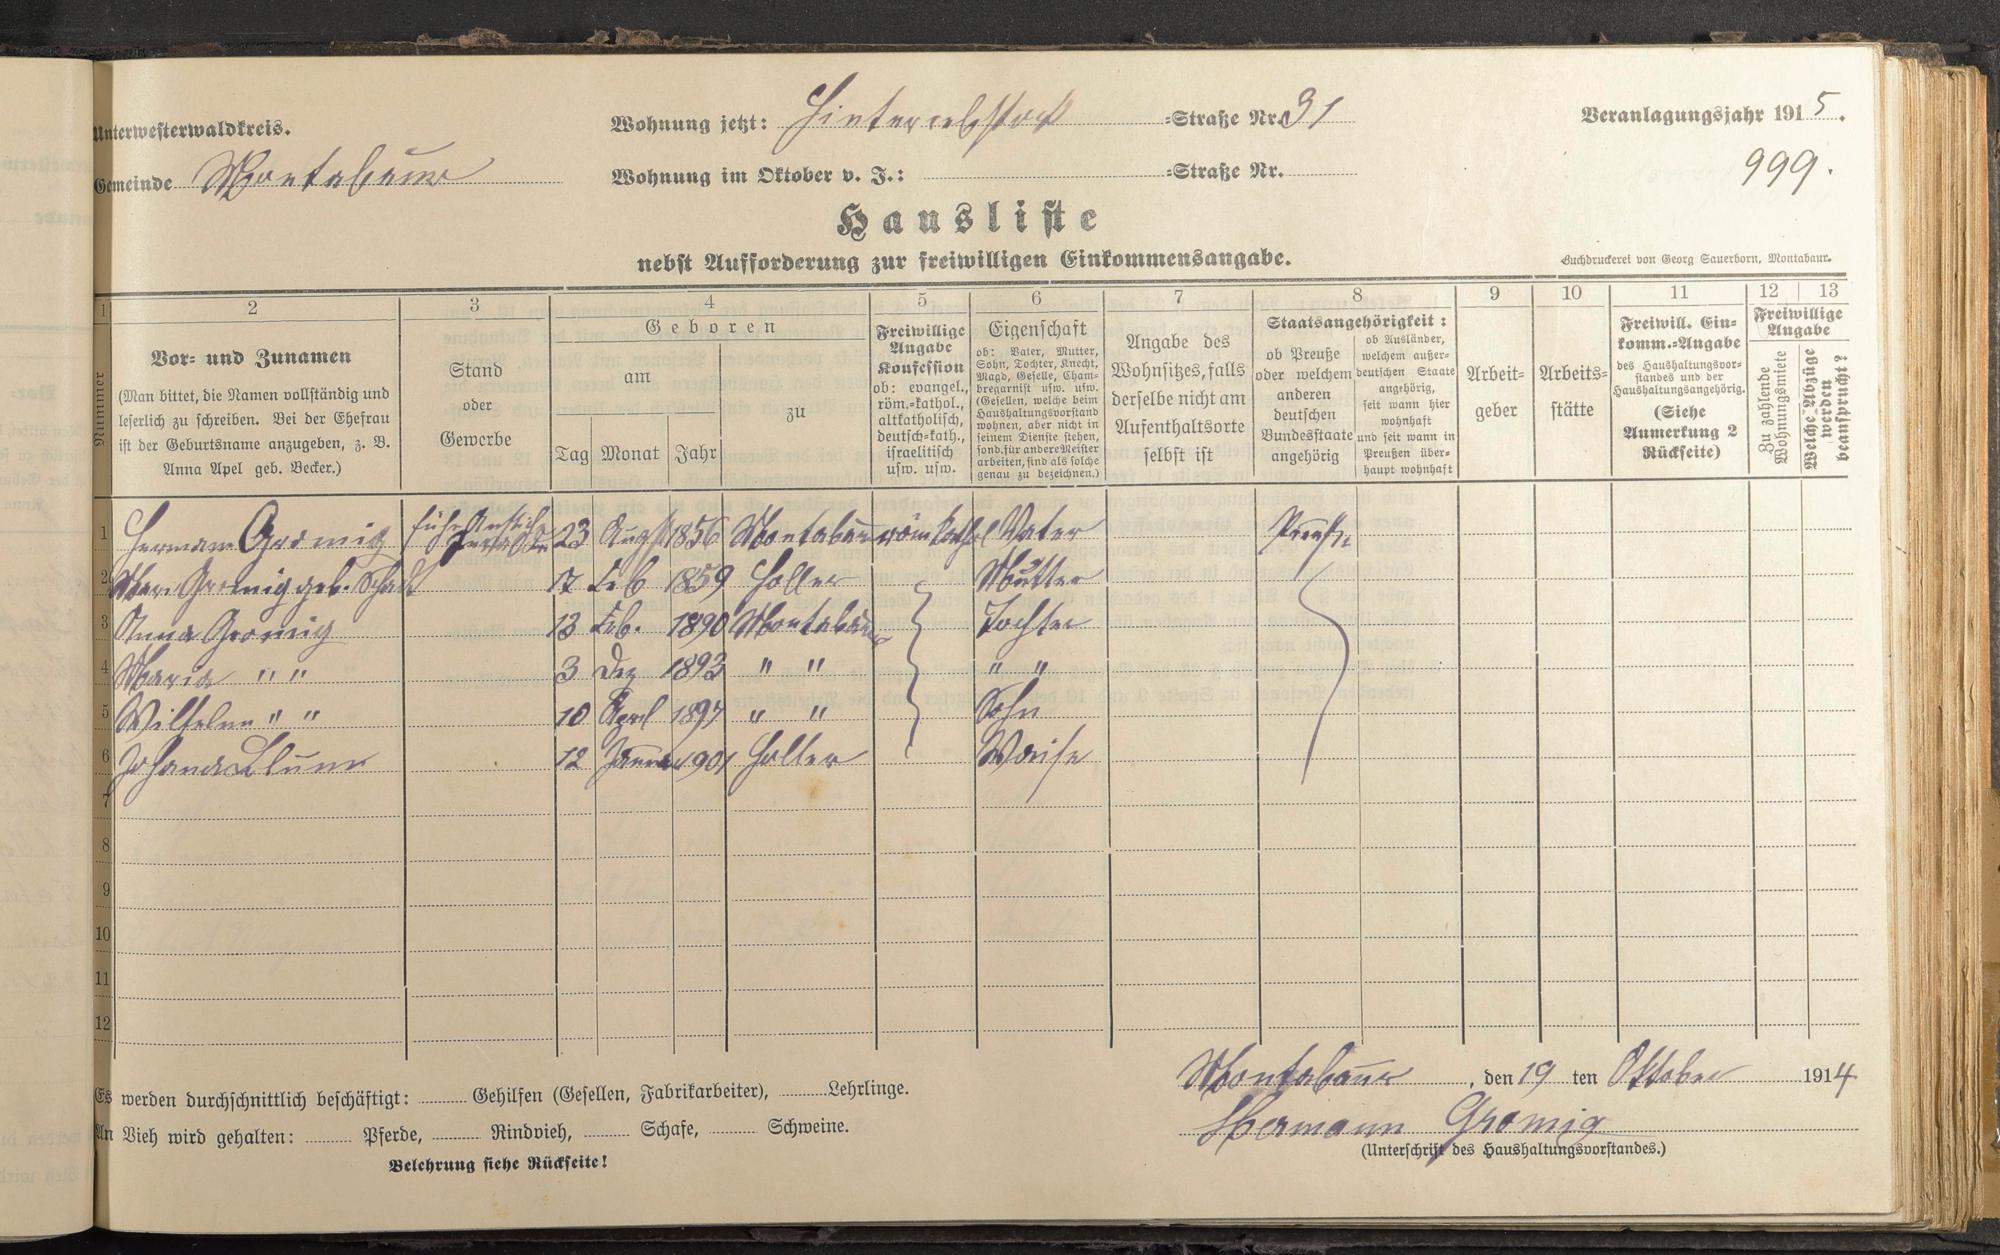 Unterwesterwaldkreis.
Wohnung jetzt: -Straße Nr. 31
Veranlagungsjahr 1915.
Gemeinde Montabaur
Wohnung im Oktober v. J.: -Straße Nr.
999.
Hausliste
nebst Aufforderung zur freiwilligen Einkommensangabe.
Buchdruckerei von Georg Sauerborn, Montabaur.
1 2 3 4 5 6 7 8 9 10 11 12 13
Nummer
Vor- und Zunamen
(Man bittet, die Namen vollständig und
leserlich zu schreiben. Bei der Ehefrau
ist der Geburtsname anzugeben, z. B.
Anna Apel geb. Becker.)
Stand
oder
Gewerbe
Geboren
am
zu
Tag Monat Jahr
Freiwillige
Angabe
Konfession
ob: evangel.,
röm.-kathol.,
altkatholisch,
deutsch-kath.,
israelitisch
usw. usw.
Eigenschaft
ob: Vater, Mutter,
Sohn, Tochter, Knecht,
Magd, Geselle, Cham-
bregarnist usw. usw.
(Gesellen, welche beim
Haushaltungsvorstand
wohnen, aber nicht in
seinem Dienste stehen,
sond. für andere Meister
arbeiten, sind als solche
genau zu bezeichnen.)
Angabe des
Wohnsitzes, falls
derselbe nicht am
Aufenthaltsorte
selbst ist
Staatsangehörigkeit:
ob Preuße
oder welchem
anderen
deutschen
Bundesstaate
angehörig
ob Ausländer,
welchem außer-
deutschen Staate
angehörig,
seit wann hier
wohnhaft
und seit wann in
Preußen über-
haupt wohnhaft
Arbeit-
geber
Arbeits-
stätte
Freiwill. Ein-
komm.-Angabe
des Haushaltungsvor-
standes und der
Haushaltungsangehörig.
(Siehe
Anmerkung 2
Rückseite)
Freiwillige
Angabe
Zu zahlende
Wohnungsmiete
Welche Abzüge
werden
beansprucht?
1 Hermann Gromig 23 August 1856 Montabaur röm kathol Vater Preuße
2 Mar. Gromig geb. 17 Feb 1859 Holler Mutter
3 Anna Gromig 13 Feb. 1890 Montabaur Tochter
4 Maria " " 3 Dez 1893 " " " "
5 Wilhelm " " 10 April 1897 " " Sohn
6 Johana Blum 12 Januar 1901 Holler Waise
7
8
9
10
11
12
Montabaur, den 19 ten Oktober 1914
Es werden durchschnittlich beschäftigt: Gehilfen (Gesellen, Fabrikarbeiter), Lehrlinge.
Hermann Gromig
An Vieh wird gehalten: Pferde, Rindvieh, Schafe, Schweine.
(Unterschrift des Haushaltungsvorstandes.)
Belehrung siehe Rückseite!